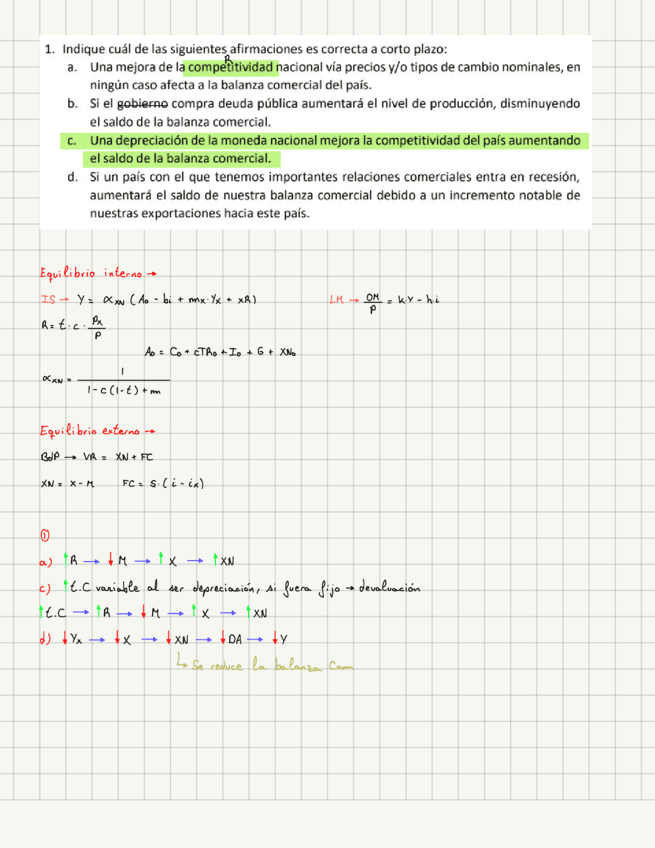 1. Indique cuál de las siguientes afirmaciones es correcta a corto plazo:
R
a. Una mejora de la competitividad nacional vía precios y/o tipos de cambio nominales, en
ningún caso afecta a la balanza comercial del país.
b. Si el gobierno compra deuda pública aumentará el nivel de producción, disminuyendo
el saldo de la balanza comercial.
c. Una depreciación de la moneda nacional mejora la competitividad del país aumentando
el saldo de la balanza comercial.
d. Si un país con el que tenemos importantes relaciones comerciales entra en recesión,
aumentará el saldo de nuestra balanza comercial debido a un incremento notable de
nuestras exportaciones hacia este país.
Equilibrio interno →
IS → Y = αXN (A₀ - bi + mx·Yx + xR) LM → OM/P = kY - hi
R = t·c· Px/P
A₀ = C₀ + cTR₀ + I₀ + G + XN₀
αXN = 1/(1-c(1-t)+m)
Equilibrio externo →
BdP → VR = XN + FC
XN = X - M FC = S·(i - ix)
①
a) ↑R → ↓M → ↑X → ↑XN
c) ↑t.C variable al ser depreciación, si fuera fijo → devaluación
↑t.C → ↑R → ↓M → ↑X → ↑XN
d) ↓Yx → ↓X → ↓XN → ↓DA → ↓Y
↳ Se reduce la balanza Com